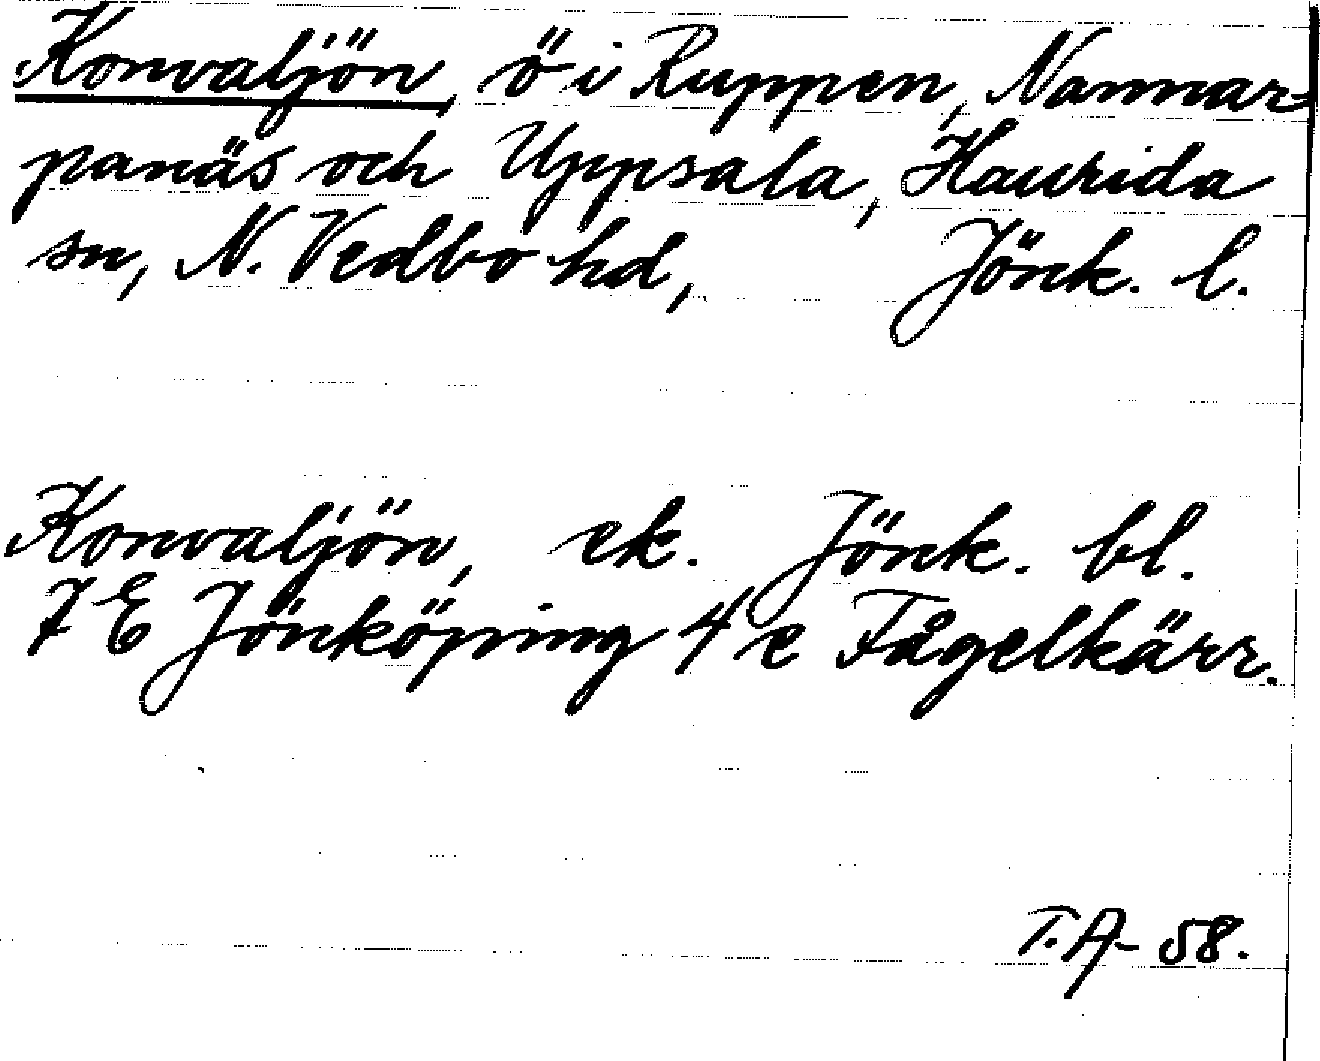 Konvaljön, ö i Ruppen, Nannar-
panäs och Uppsala, Haurida
sn, N. Vedbo hd, Jönk. l.
Konvaljön, ek. Jönk. bl.
7 E Jönköping 4 e Fågelkärr.
T.A-58.